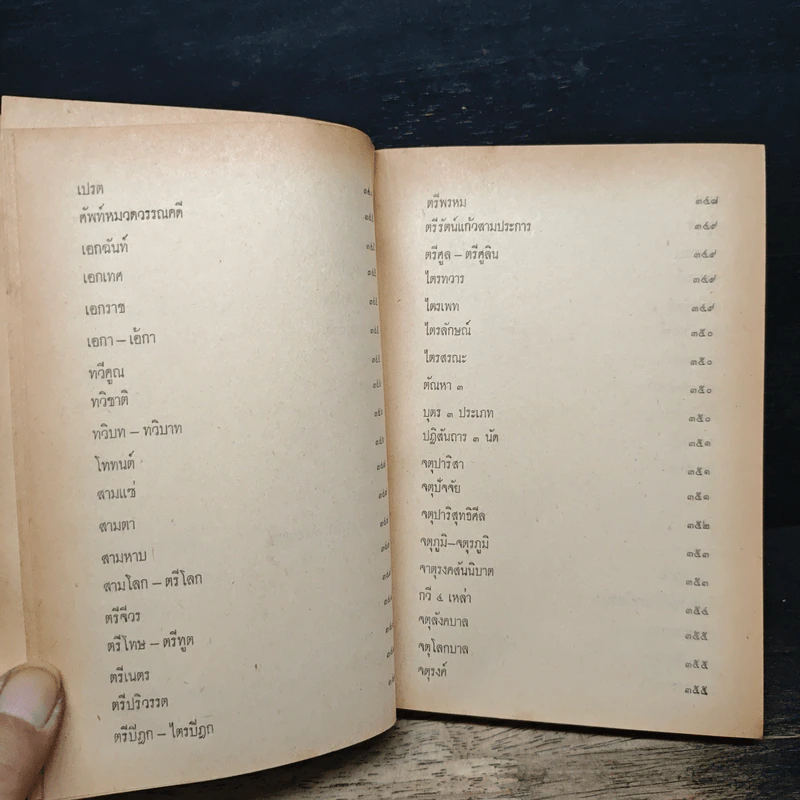 เปรต
ศัพท์หมวดวรรณคดี
เอกฉันท์
เอกเทศ
เอกราช
เอกา – เอ้กา
ทวีคูณ
ทวิชาติ
ทวิบท – ทวิบาท
โททนต์
สามแซ่
สามตา
สามหาบ
สามโลก – ตรีโลก
ตรีจีวร
ตรีโทษ – ตรีทูต
ตรีเนตร
ตรีปริวรรต
ตรีปิฎก – ไตรปิฎก
ตรีพรหม ๓๔๘
ตรีรัตน์แก้วสามประการ ๓๔๙
ตรีศูล – ตรีศูลิน ๓๔๙
ไตรทวาร ๓๔๙
ไตรเพท ๓๔๙
ไตรลักษณ์ ๓๕๐
ไตรสรณะ ๓๕๐
ตัณหา ๓ ๓๕๐
บุตร ๓ ประเภท ๓๕๐
ปฏิสันถาร ๓ นัด ๓๕๑
จตุปาริสา ๓๕๑
จตุปัจจัย ๓๕๑
จตุปาริสุทธิศีล ๓๕๒
จตุภูมิ–จตุรภูมิ ๓๕๓
จาตุรงคสันนิบาต ๓๕๓
กวี ๔ เหล่า ๓๕๔
จตุลังคบาล ๓๕๕
จตุโลกบาล ๓๕๕
จตุรงค์ ๓๕๕